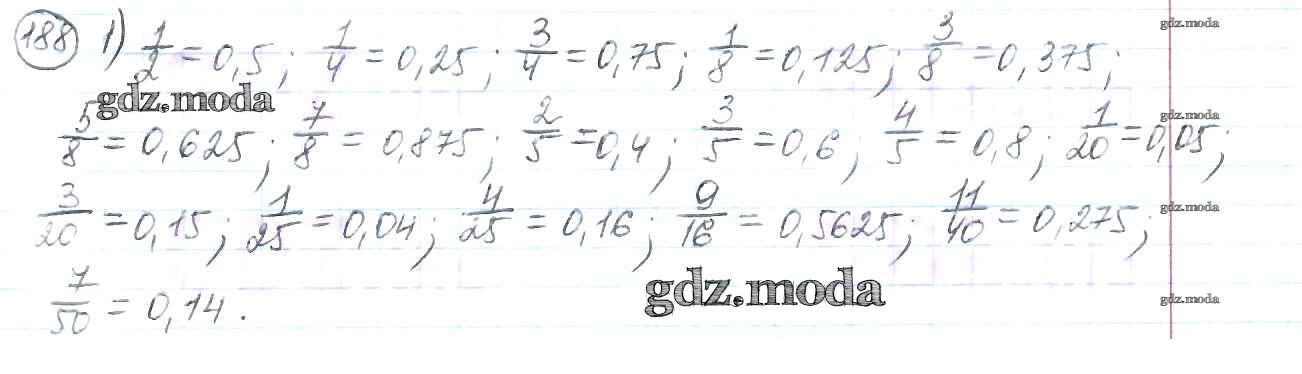 188 1) 1/2 = 0,5; 1/4 = 0,25; 3/4 = 0,75; 1/8 = 0,125; 3/8 = 0,375; gdz.moda
gdz.moda
5/8 = 0,625; 7/8 = 0,875; 2/5 = 0,4; 3/5 = 0,6; 4/5 = 0,8; 1/20 = 0,05; gdz.moda
3/20 = 0,15; 1/25 = 0,04; 4/25 = 0,16; 9/16 = 0,5625; 11/40 = 0,275; gdz.moda
7/50 = 0,14. gdz.moda gdz.moda